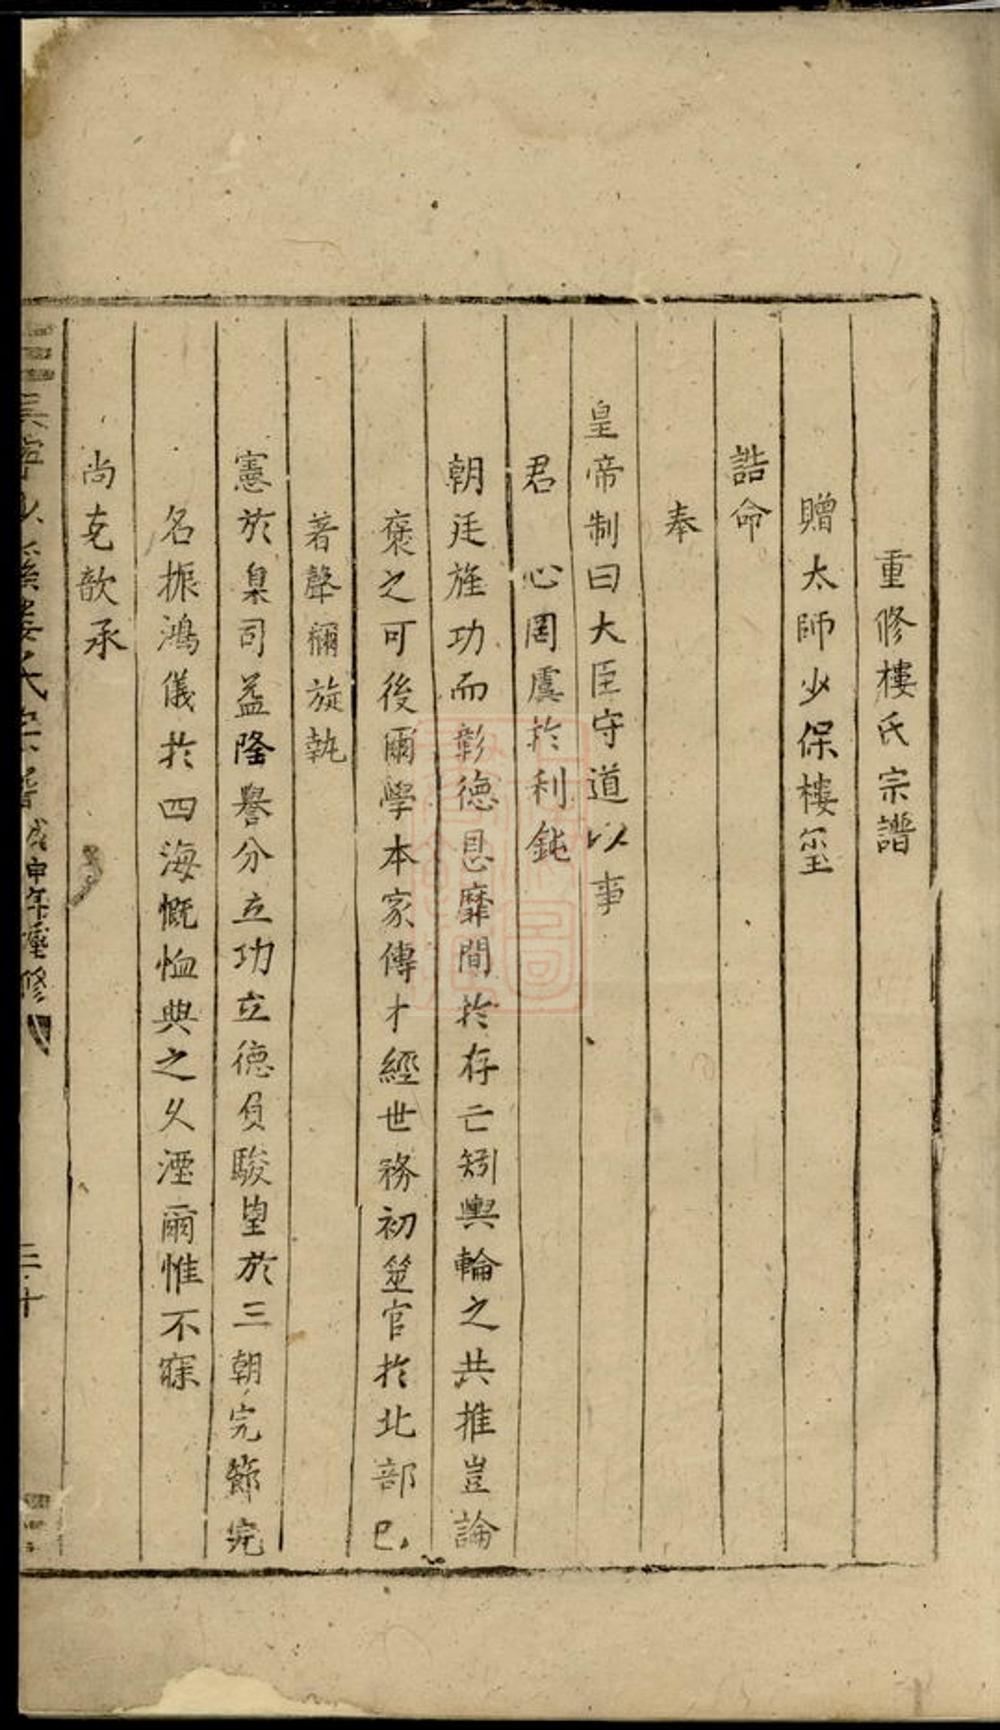 重修樓氏宗譜
贈太師少保樓璽
誥命
奉
皇帝制曰大臣守道以事
君 心罔虞於利鈍
朝廷旌功而彰德恩靡間於存亡矧輿輪之共推豈論
褒之可後爾學本家傳才經世務初筮官於北部已
著聲禰旋執
憲於臬司益隆譽分立功立德負駿望於三朝完節完
名振鴻儀於四海慨恤典之久湮爾惟不寐
尚克歆承
寧 溪婁氏宗譜 戊申年重修
二十